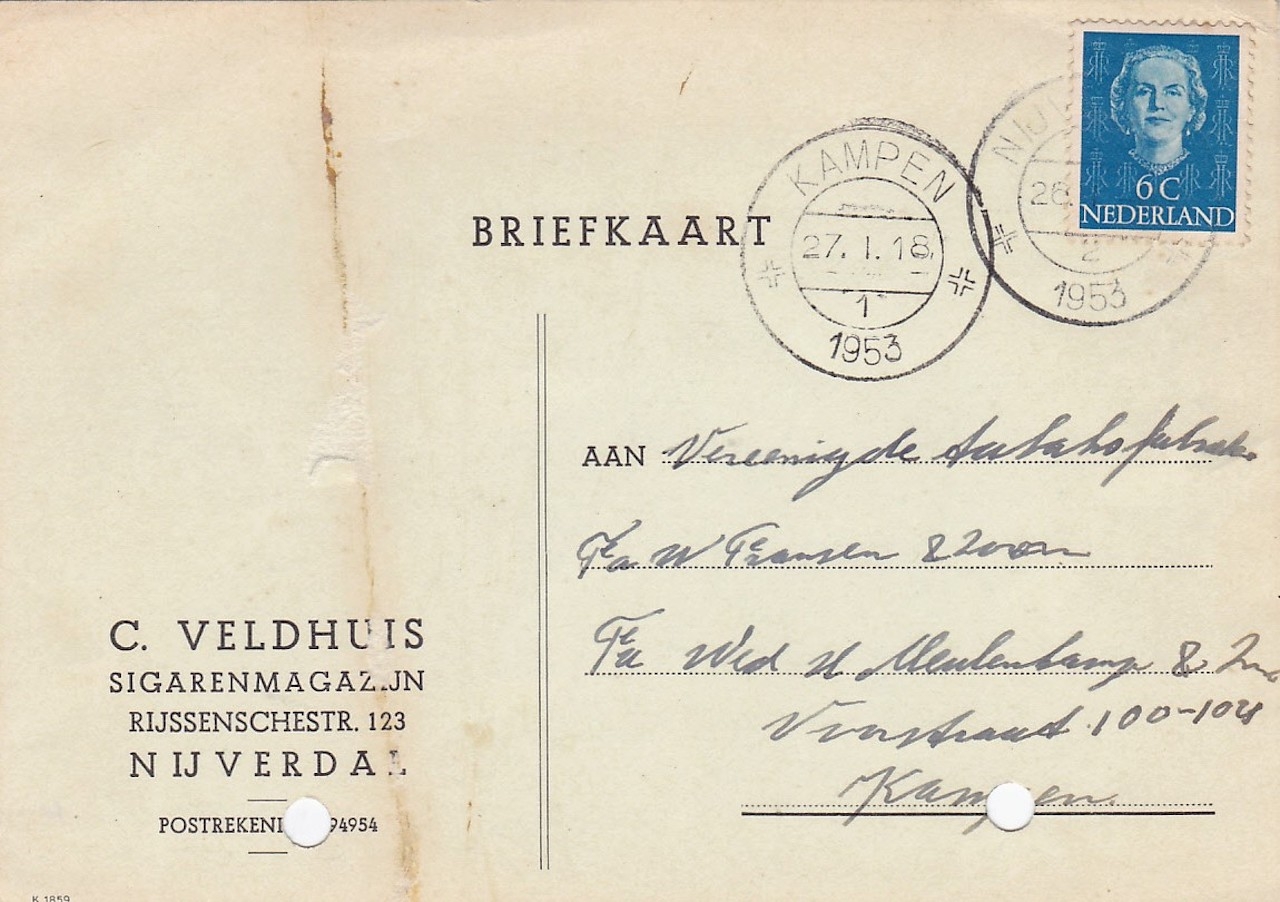 BRIEFKAART
KAMPEN
27. 1. 18
1
1953
NIJ
26.
2
1953
6 C
NEDERLAND
AAN Vereenigde Tabaksfabrieken
Fa W Fransen & Zoon
Fa Wed H Meulenkamp & Zn
Voorstraat 100-104
Kampen.
C. VELDHUIS
SIGARENMAGAZIJN
RIJSSENSCHESTR. 123
NIJVERDAL
POSTREKENI 94954
K 1859